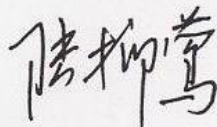 陆柳莺